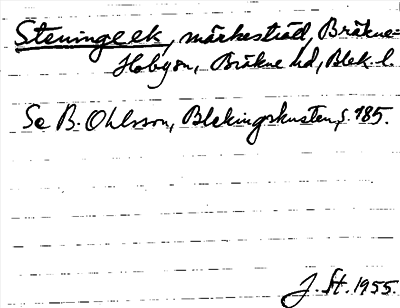 Steningeek, märkesträd, Bräkne-
Hobysn, Bräkne hd, Blek. l.
Se B. Ohlsson, Blekingskusten, s. 185.
J. St. 1955.